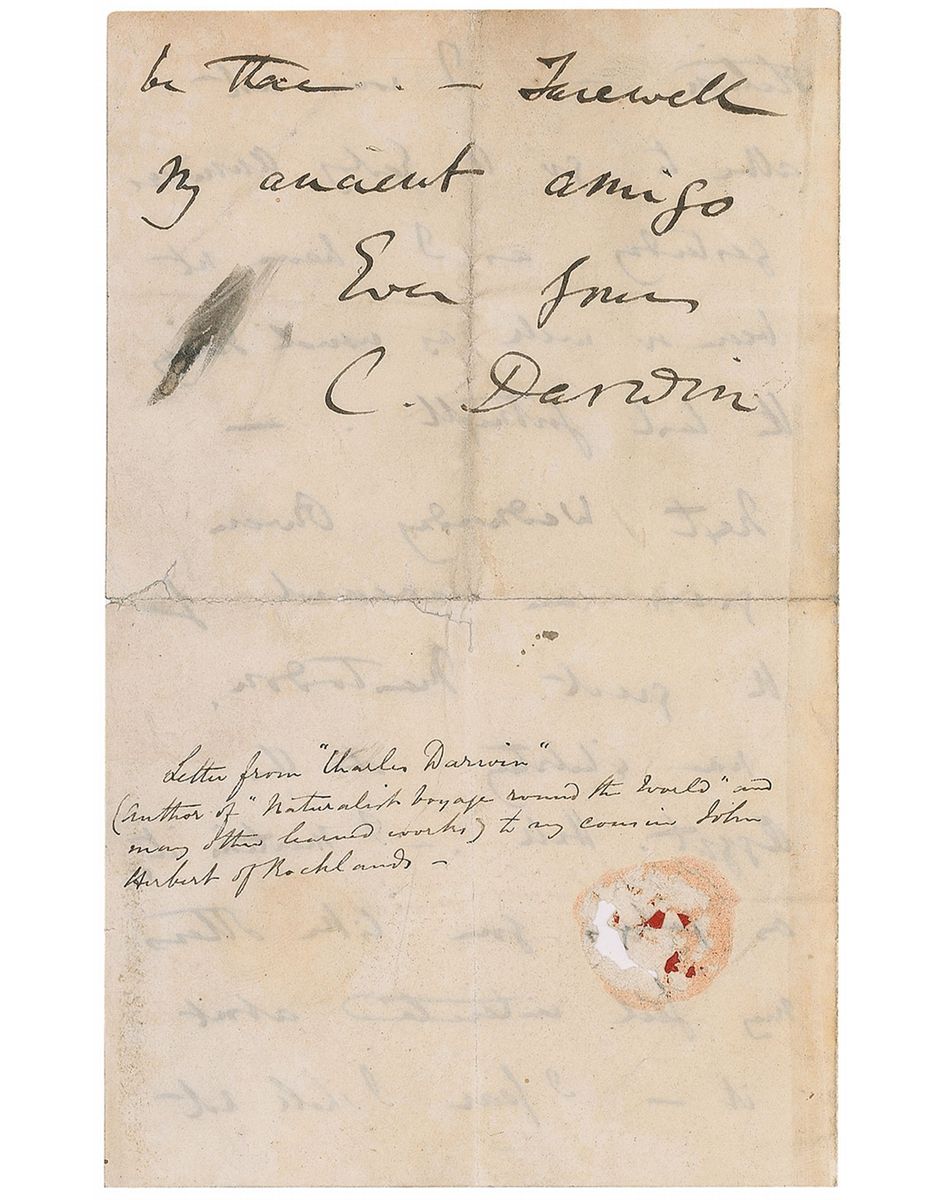 be there. — Farewell
My ancient amigo
Ever yours
C. Darwin
Letter from "Charles Darwin"
(Author of "Naturalist voyage round the World" and
many other learned works) to my cousin John
Herbert of Rocklands —